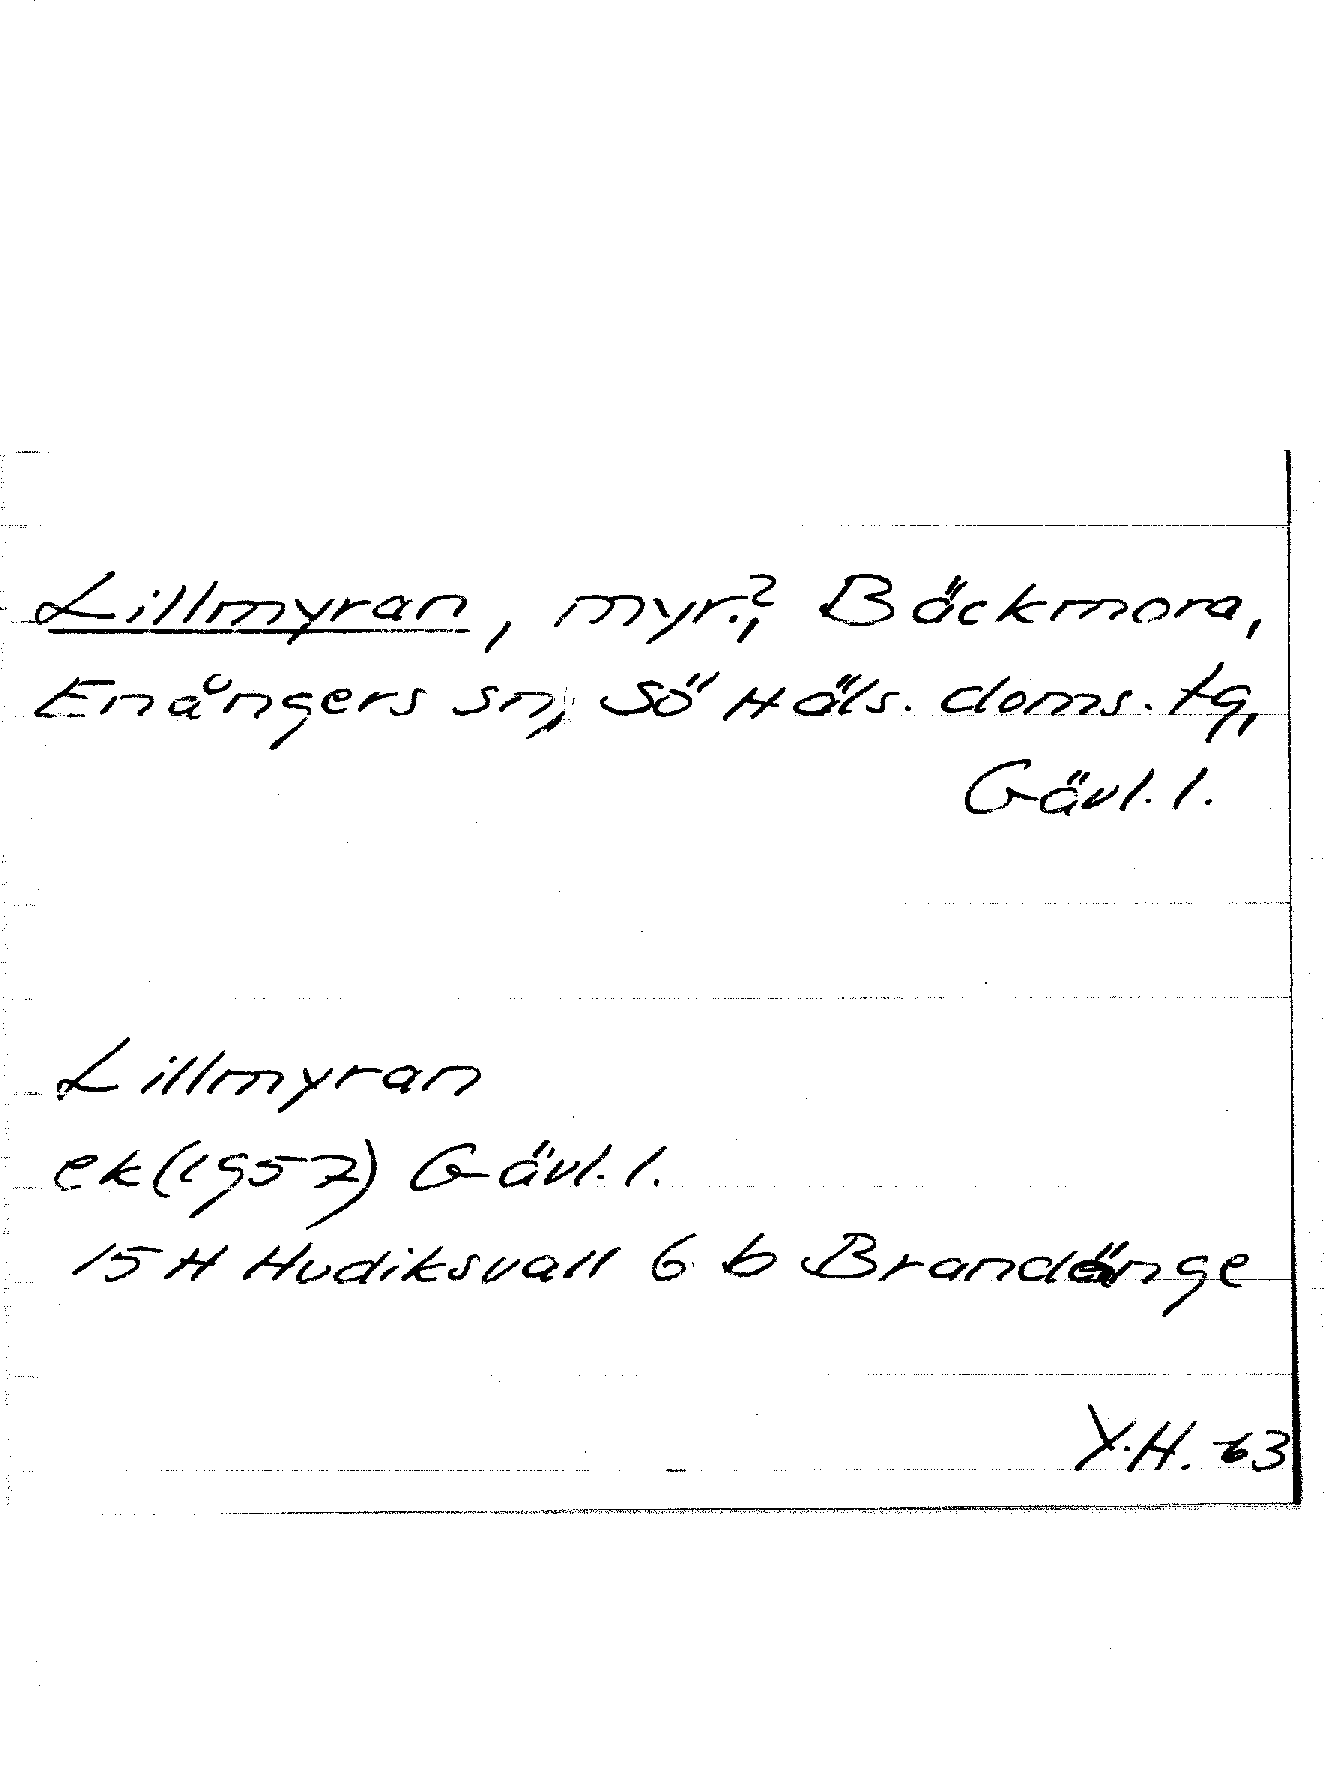 Lillmyran, myr.?, Bäckmora,
Enångers sn, Sö Häls. doms. tg,
Gävl. l.
Lillmyran
ek (1957) Gävl. l.
15 H Hudiksvall 6 b Brandänge
Y.H. -63